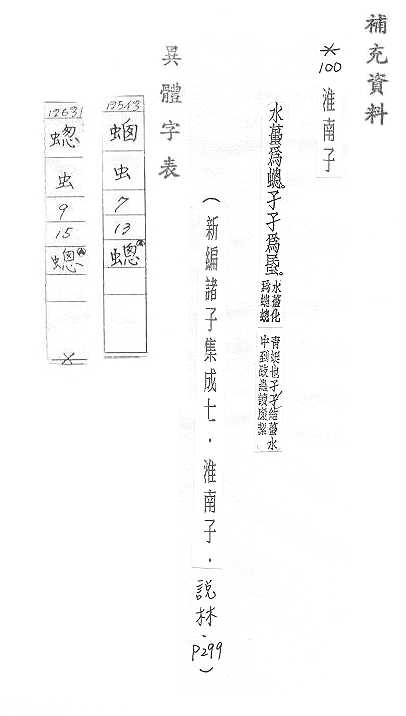 補充資料
※100 淮南子
水蠆爲蟌。孑孑爲䖟。
水蠆化
爲蟌蟌
青蜓也孑孑結蠆水
中到跂蟲讀廉絜
(新編諸子集成七．淮南子．說林．P299)
異體字表
12543
蜠
虫
7
13
蟌
12631
蟌
虫
9
15
蟌